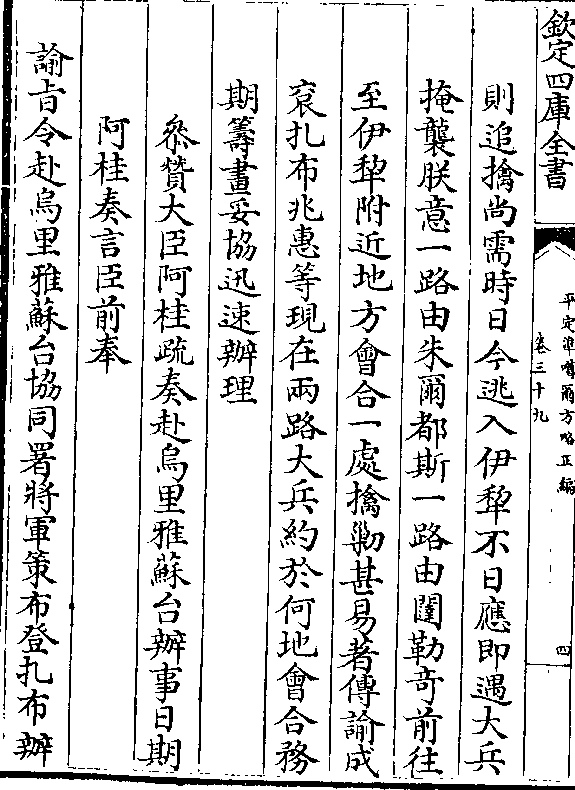 欽定四庫全書
平定準噶爾方略正編
卷三十九
四
則追擒尚需時日今逃入伊犂不日應即遇大兵
掩襲朕意一路由朱爾都斯一路由闥勒奇前往
至伊犂附近地方會合一處擒勦甚易著傳諭成
袞扎布兆惠等現在兩路大兵約於何地會合務
期籌畫妥協迅速辦理
叅贊大臣阿桂疏奏赴烏里雅蘇台辦事日期
阿桂奏言臣前奉
諭旨令赴烏里雅蘇台協同署將軍策布登扎布辦